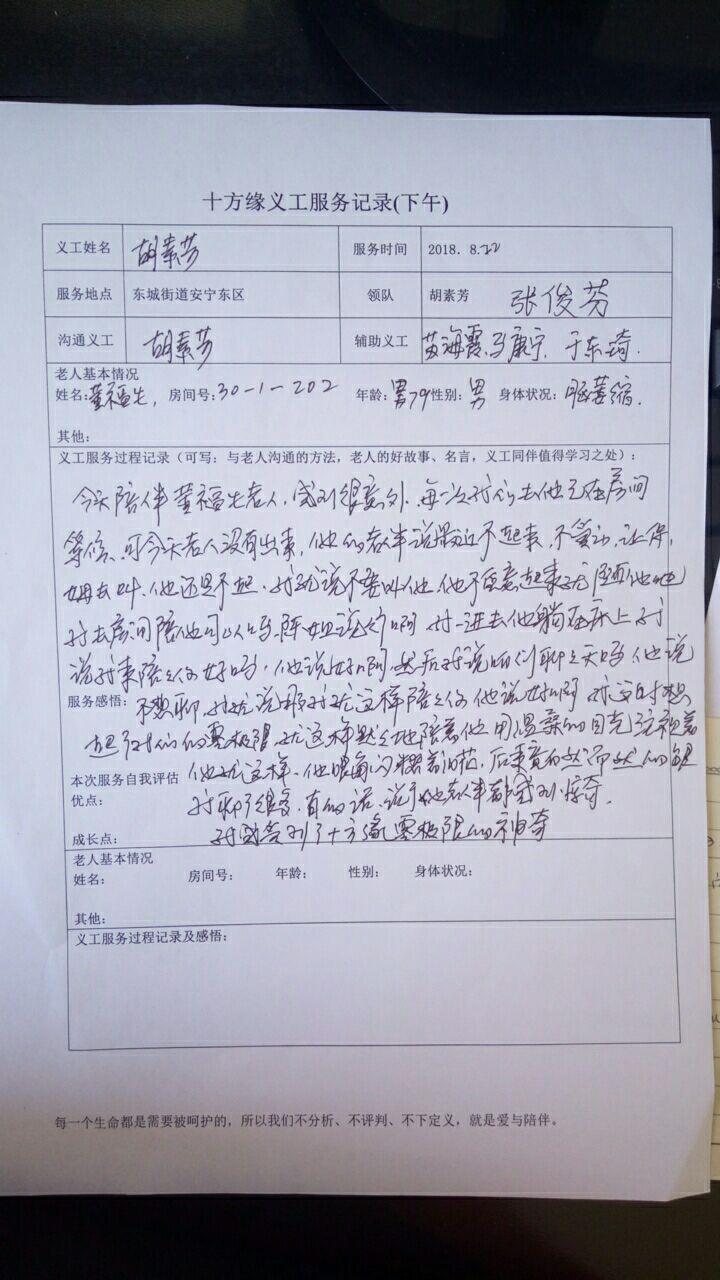 十方缘义工服务记录(下午)
义工姓名 胡素芳 服务时间 2018. 8.22
服务地点 东城街道安宁东区 领队 胡素芳 张俊芬
沟通义工 胡素芳 辅助义工 黄海霞 马康宁. 于东琦.
老人基本情况
姓名:董福生, 房间号:30-1-202 年龄:男79 性别:男 身体状况:脑萎缩.
其他:
义工服务过程记录(可写:与老人沟通的方法,老人的好故事、名言,义工同伴值得学习之处):
今天陪伴董福生老人,感到很意外,每一次我们去他已在房间
等候、可今天老人没有出来,他的老伴说最近不起来,不爱动,让保
姆去叫,他还是不起、我就说不要叫他,他不愿意起来就随他吧
我去房间陪他可以吗,陈姐说行啊 我一进去他躺在床上 我
说我来陪陪你好吗,他说好啊 然后我说咱们聊聊天吗 他说
服务感悟: 不想聊,我就说那我就这样陪陪你 他说好啊 我这时想
起了我们的零极限,就这样默默地陪着他 用温柔的目光注视着
本次服务自我评估 他就这样、他眼角闪着泪花,后来竟自然而然的跟
优点: 我聊了很多,有的话、说了他老伴都感到惊奇,
成长点: 我感受到了十方缘零极限的神奇
老人基本情况
姓名: 房间号: 年龄: 性别: 身体状况:
其他:
义工服务过程记录及感悟:
每一个生命都是需要被呵护的,所以我们不分析、不评判、不下定义,就是爱与陪伴。